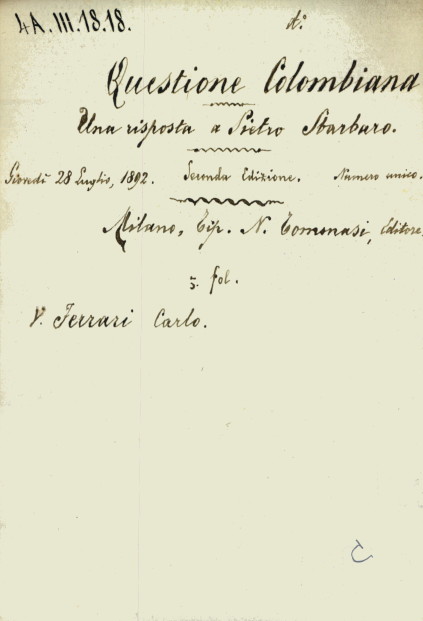 4A.III.18.18.
d.º
Questione Colombiana
Una risposta a Pietro Sbarbaro.
Giovedì 28 Luglio, 1892. Seconda Edizione. Numero unico.
Milano, Tip. N. Tommasi, Editore,
5. fol.
V. Ferrari Carlo.